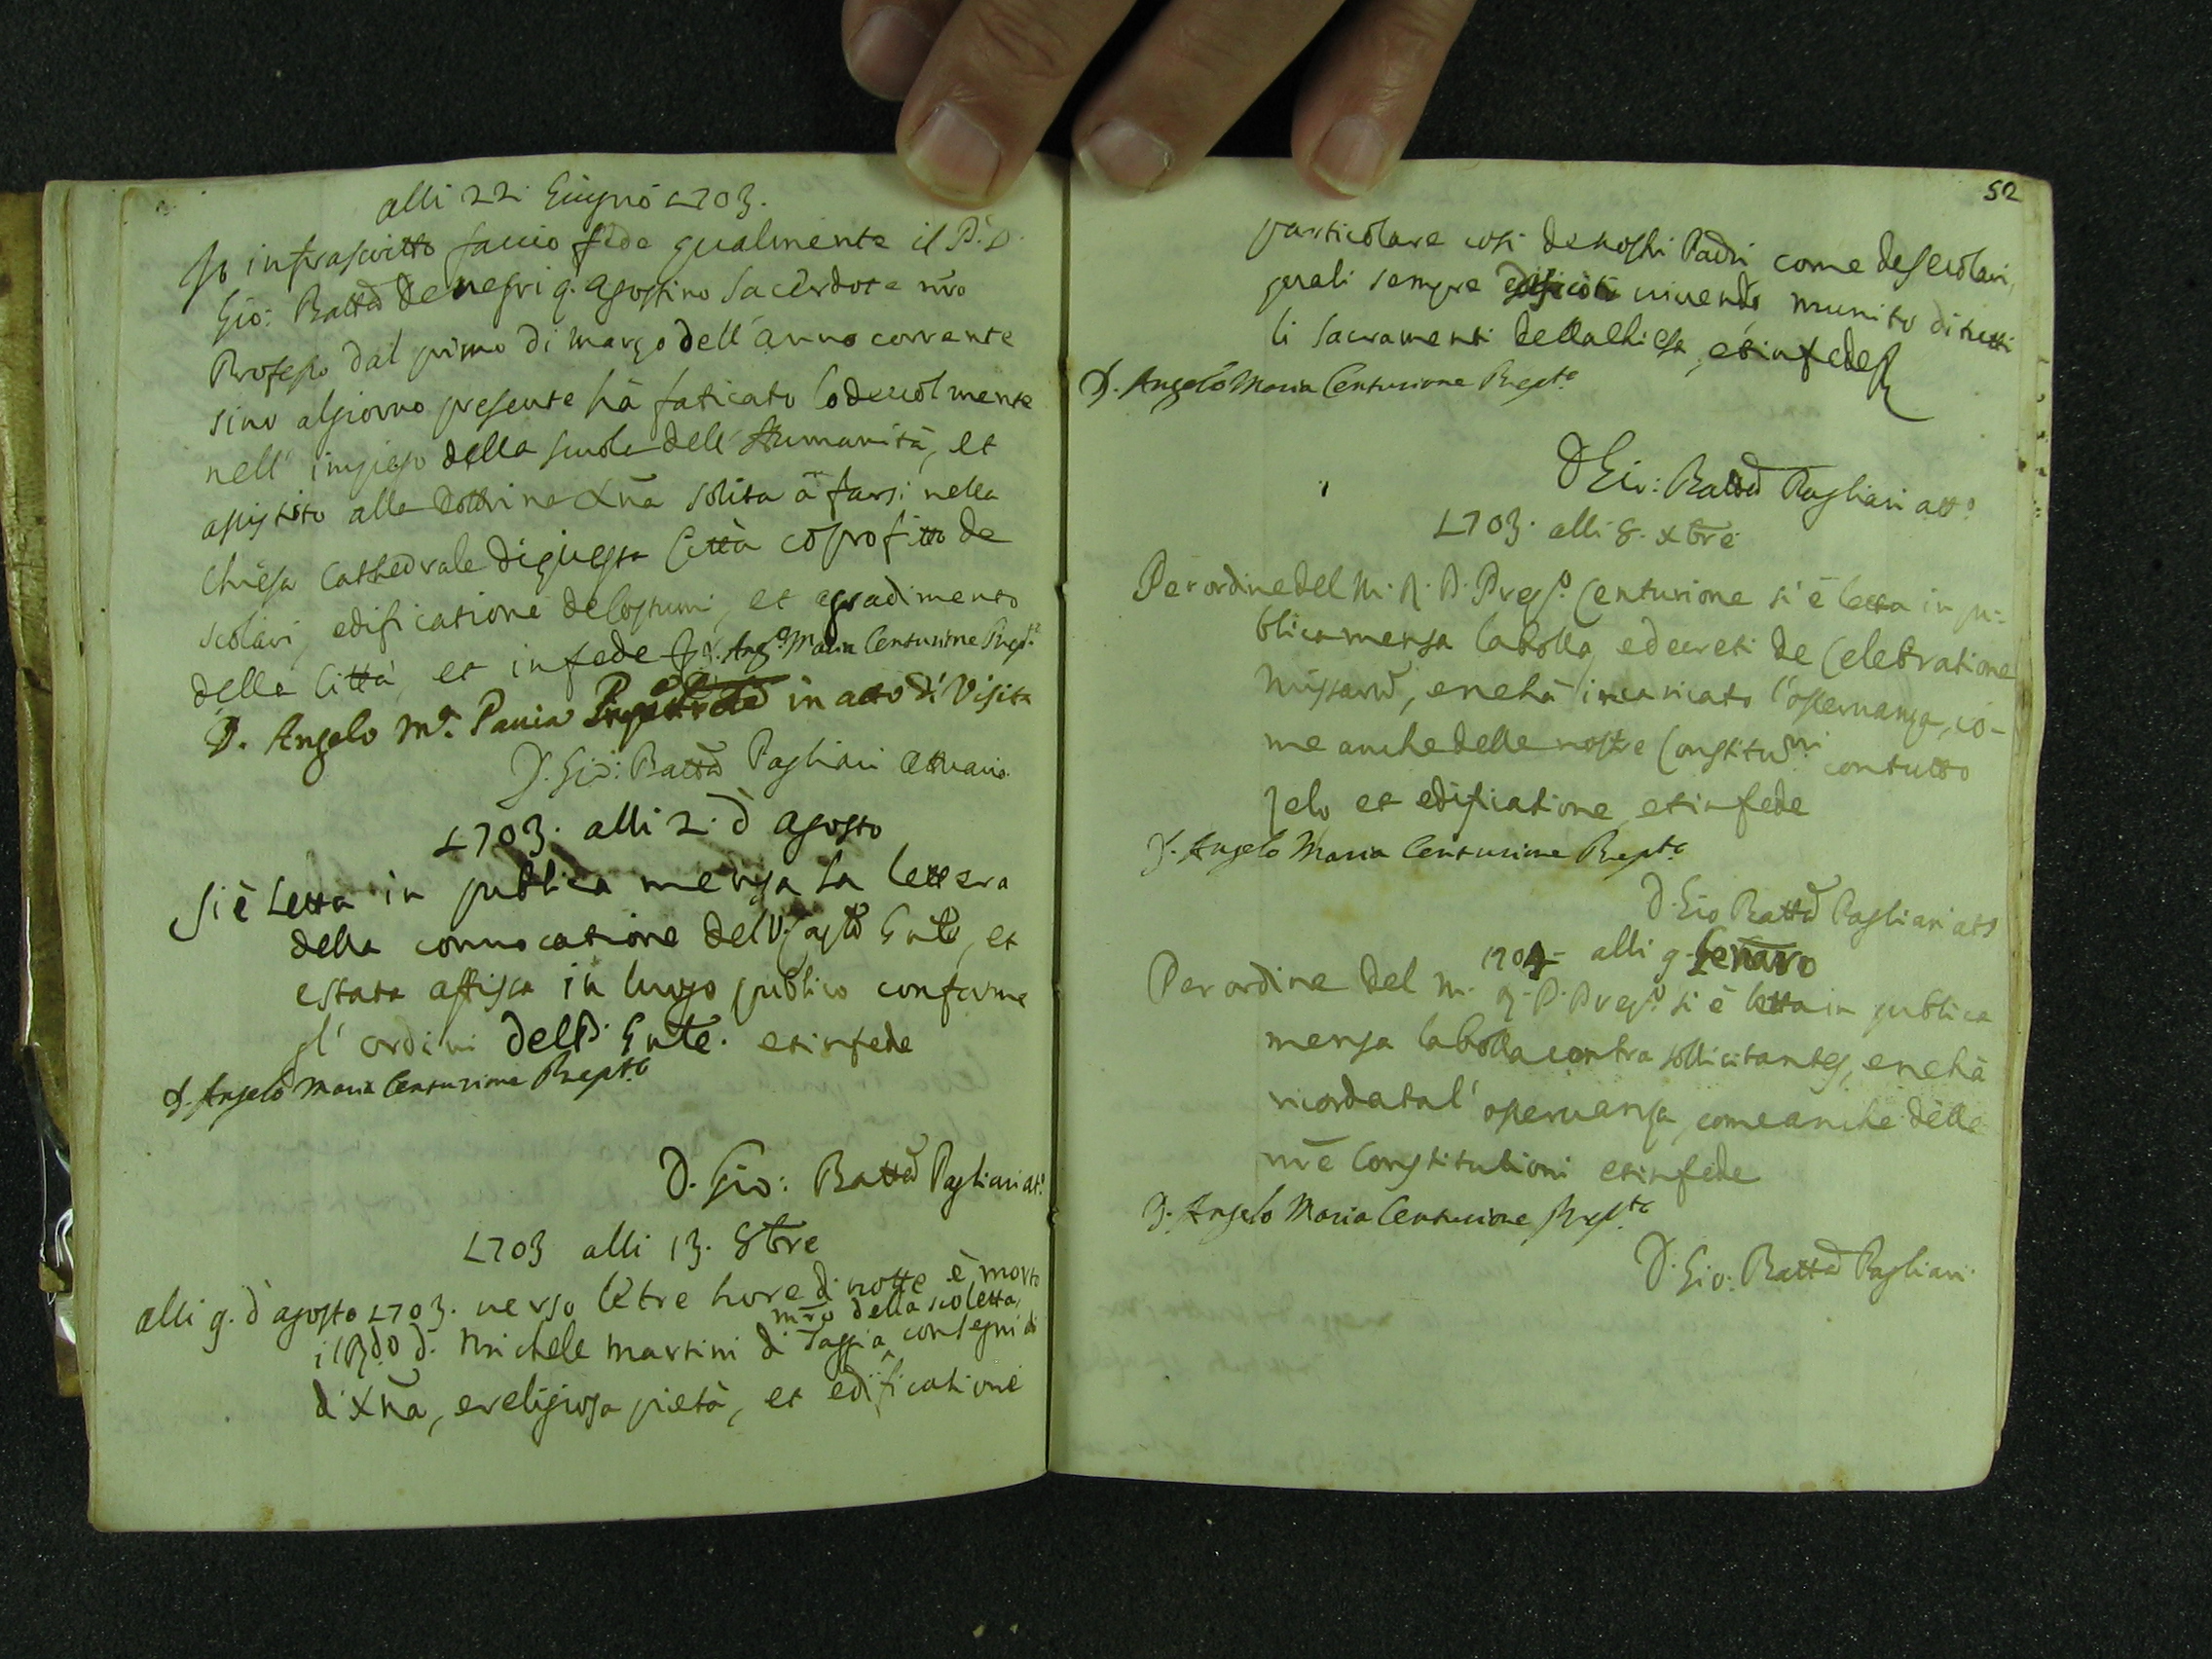 alli 22. Giugno 1703.
Io infrascritto faccio fede qualmente il P. D.
Gio: Battā Denegri q. Agostino Sacerdote nr̄o
Professo dal primo di marzo dell'anno corrente
sino al giorno presente hà faticato lodevolmente
nell' impiego della scuola dell'Humanità, et
assistito alla dottrina Xn̄a solita à farsi nella
Chiesa Cathedrale di questa Città co profitto de
scolari, edificatione de costumi, et agradimento
della Città, et in fede D. Ang.º Maria Centurione Prep.to
D. Angelo M.ª Pavia in atto di Visita
D. Gio: Battā Pagliari Attuario
1703. alli 2. d'agosto
Si è Letta in publica mensa la lettera
della convocatione del V. Caplō Gnlē, et
è stata affissa in luogo publico conforme
gl' ordini del P. Gnlē. et in fede
D. Angelo Maria Centurione Prep.to
D. Gio: Battā Pagliari att.º
1703 alli 13. 8br̄e
alli 9. d'agosto 1703. verso le tre hore di notte è morto
mr̄o della scoletta,
il Rdo D. Michele Martini di Taggia ^ con segni di
di Xn̄a, e religiosa pietà, et edificatione
52
particolare così de nostri Padri come de secolari,
quali sempre edificò vivendo, munito di tutti
li Sacramenti della Chiesa, et in fede
D. Angelo Maria Centurione Prep.to
D Gio: Battā Pagliari att.º
1703. alli 8. Xbr̄e
Per ordine del M. R. P. Prep.º Centurione si è letta in pu-
blica mensa la bolla, e decreti de Celebratione
Missarū, e ne hà incaricato l'osservanza, co-
me anche delle nostre Constitut.ni con tutto
zelo et edificatione et in fede
D. Angelo Maria Centurione Prep.to
D. Gio Battā Pagliari att.º
1704 alli 9. Genaro
Per ordine del M. R. P. Prep.º si è letta in publica
mensa la bolla contra sollicitantes, e ne hà
ricordata l' osservanza, come anche delle
nr̄e Constitutioni et in fede
D. Angelo Maria Centurione Prep.to
D. Gio: Battā Pagliari